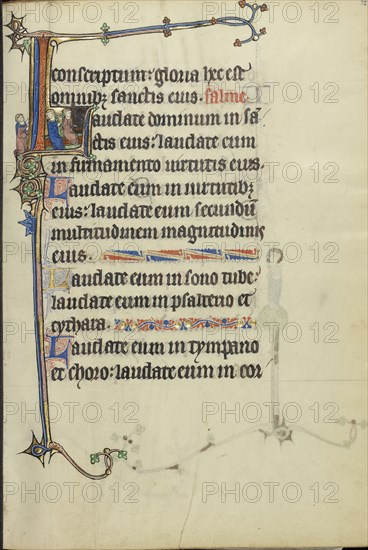 conscriptum: gloria hec est
omnibꝫ sanctis eius. salme
Laudate dominum in sā
ctis eius: laudate eum
in firmamento virtutis eius.
Laudate eum in virtutibꝫ
eius: laudate eum secundū
multitudinem magnitudinis
eius.
Laudate eum in sono tube:
laudate eum in psalterio et
cythara.
Laudate eum in tympano
et choro: laudate eum in cor
PHOTO 12